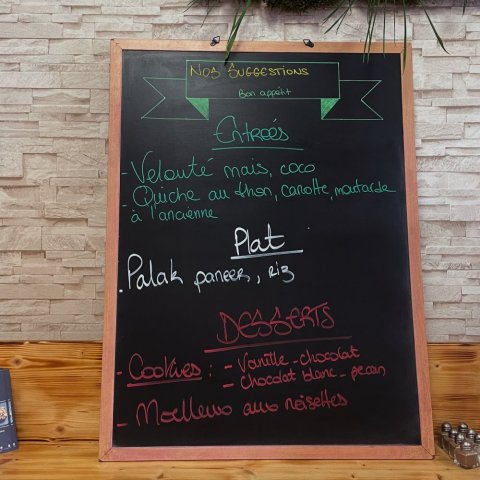 Nos Suggestions
Bon appétit
Entrées
- Velouté maïs, coco
- Quiche au thon, carotte, moutarde
à l'ancienne
Plat
. Palak paneer, riz
DESSERTS
- Cookies : - Vanille - chocolat
- Chocolat blanc - pecan
- Moelleux aux noisettes